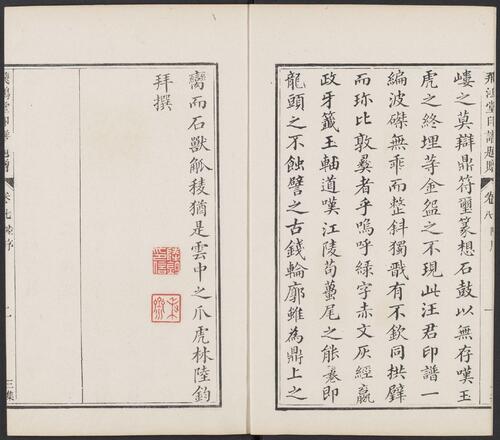 飛鴻堂印譜題賦
嶁之莫辯鼎符璽篆想石鼓以無存嘆玉
虎之終埋等金盌之不現此汪君印譜一
編波磔無乖而整斜獨戬有不欽同拱璧
而珎比敦彝者乎嗚呼綠字赤文灰經嬴
政牙籤玉軸道嘆江陵苟蠆尾之能卷即
龍頭之不蝕譬之古錢輪廓雖為鼎上之
臠而石獸觚稜猶是雲中之爪虎林陸鈞
拜撰
三集